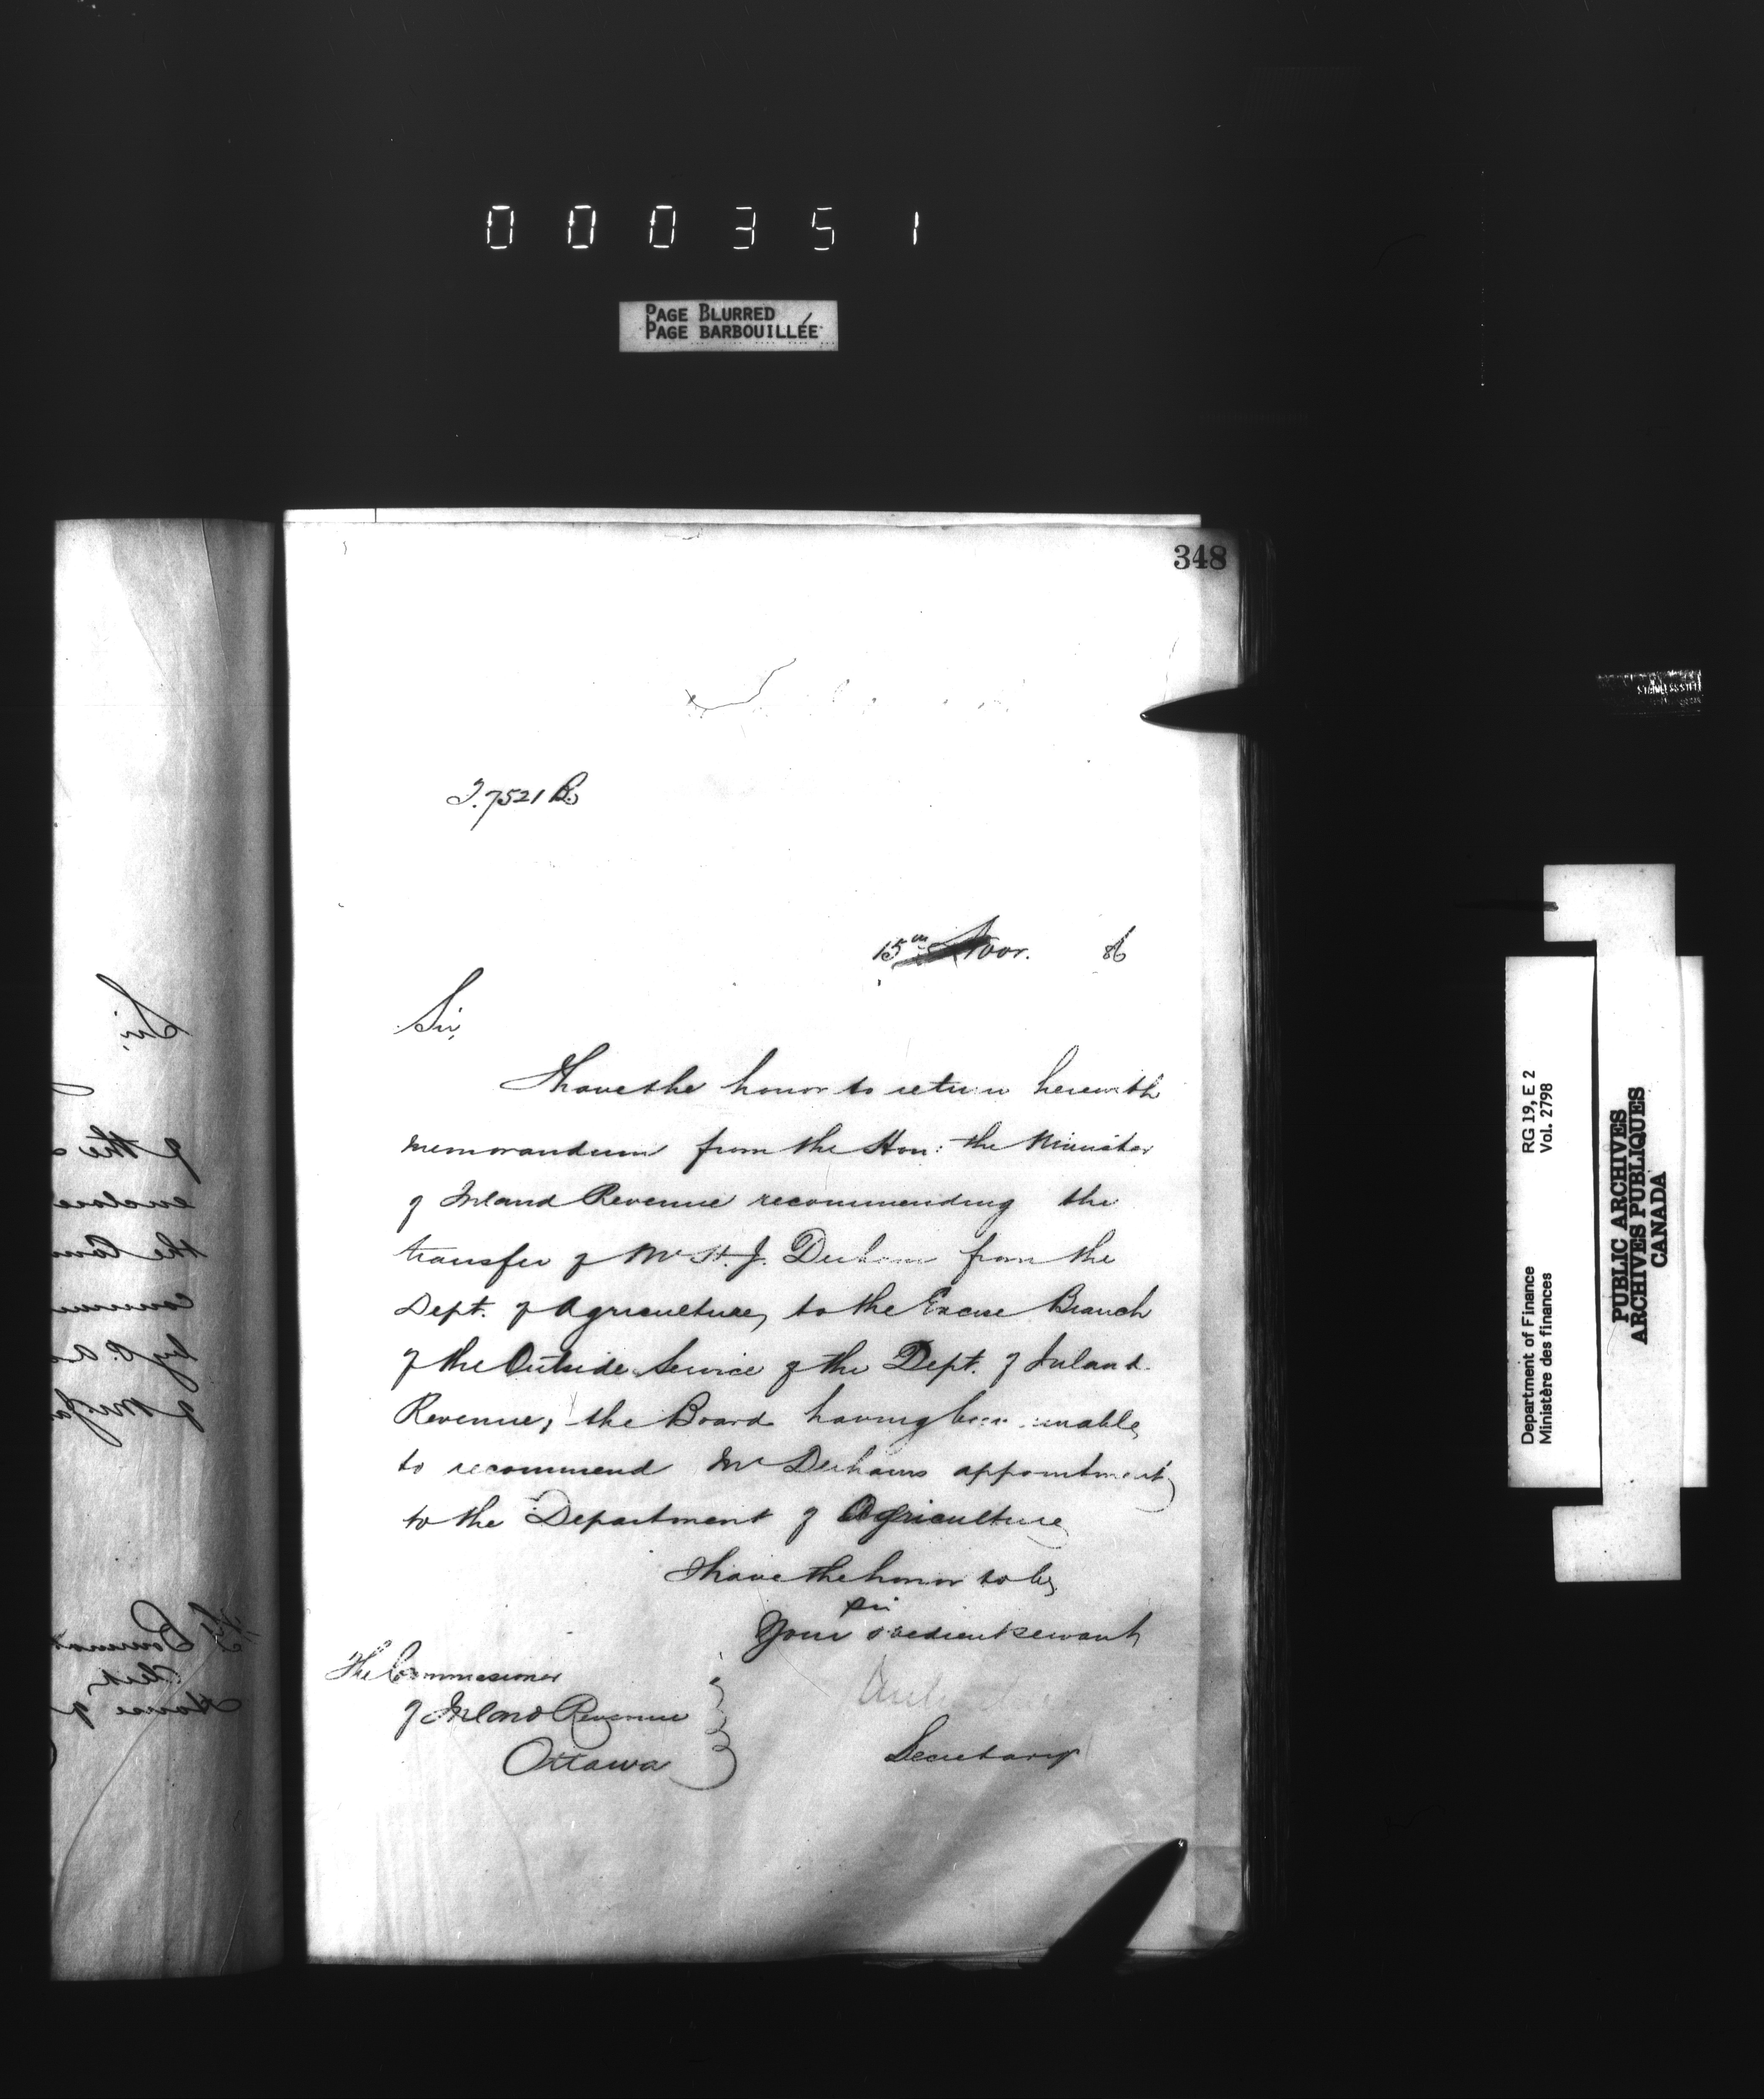 000351
PAGE BLURRED
PAGE BARBOUILLÉE
348
J. 7521 B.
15th Novr. 86
Sir,
I have the honor to return herewith
memorandum from the Hon: the Minister
of Inland Revenue recommending the
transfer of Mr H. J. from the
Dept. of Agriculture, to the Excise Branch
of the Outside Service of the Dept. of Inland
Revenue, the Board having been unable
to recommend Mr appointment
to the Department of Agriculture
I have the honor to be
Sir
Your obedient servant
Secretary
The Commissioner
of Inland Revenue
Ottawa
Department of Finance RG 19, E 2
Ministère des finances Vol. 2798
PUBLIC ARCHIVES
ARCHIVES PUBLIQUES
CANADA
Sir,
of the
enclose
the Com
by
of Mr Ja
House of